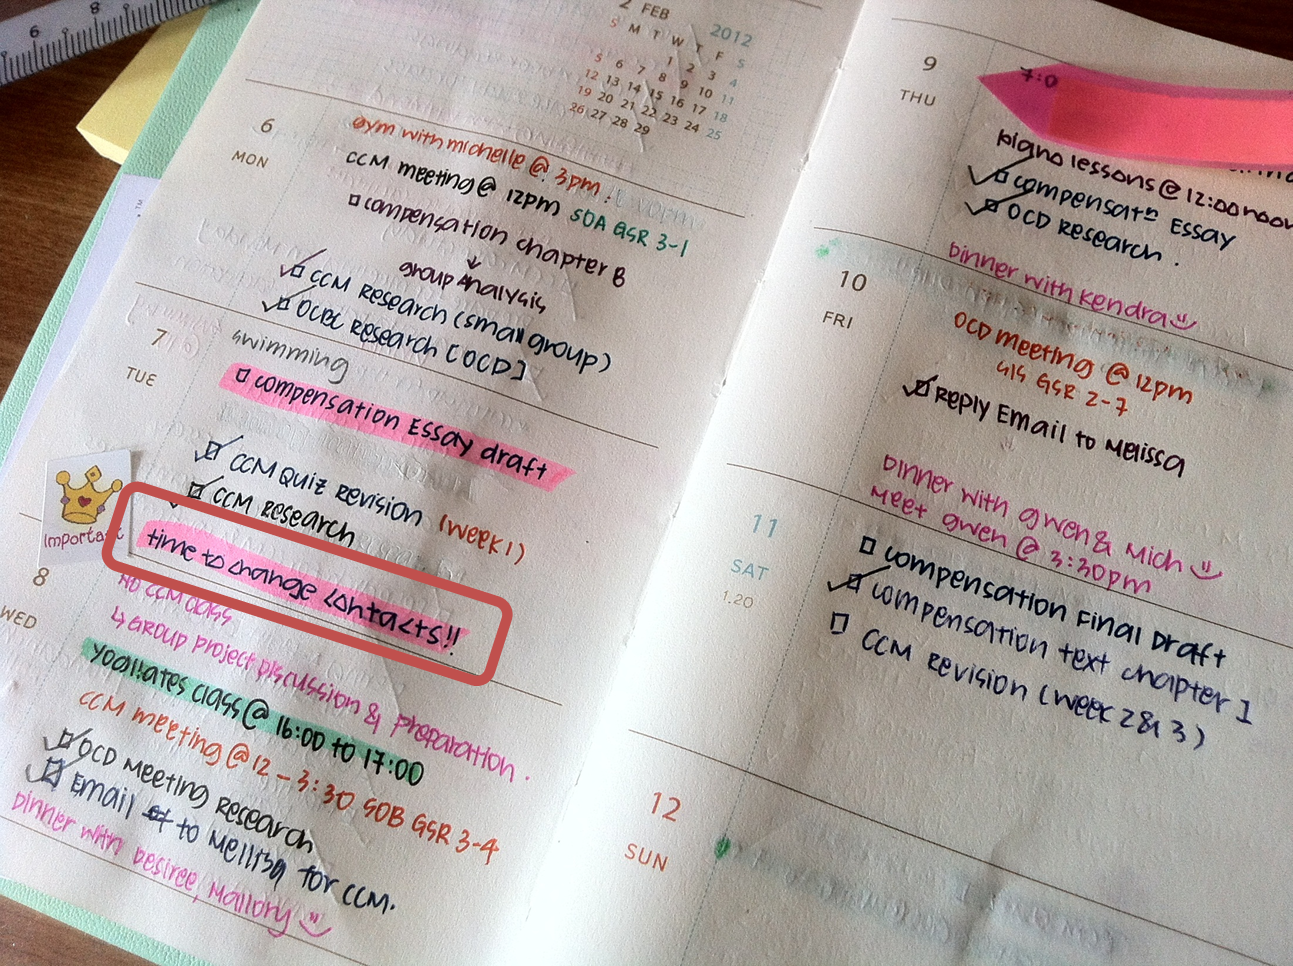 6
8
2 FEB
2012
S M T W T F S
1 2 3 4
5 6 7 8 9 10 11
12 13 14 15 16 17 18
19 20 21 22 23 24 25
26 27 28 29
6
MON
gym with michelle @ 3pm!
CCM meeting @ 12pm SOA GSR 3-1
compensation chapter 8
↓
group Analysis
CCM Research (small group)
OCBC Research [OCD]
7
TUE
swimming
compensation Essay draft
CCM QUIZ REVISION (WEEK 1)
CCM RESEARCH
Important
time to change contacts!!
8
WED
NO CCM CLASS
↳ GROUP PROJECT DISCUSSION & PREPARATION.
Yogilates class @ 16:00 to 17:00
CCM meeting @ 12 - 3:30 SOB GSR 3-4
OCD Meeting Research
Email to Melissa for CCM.
Dinner with Desiree, Mallory
9
THU
7:0
piano lessons @ 12:00 noon
compensatn Essay
OCD Research.
Dinner with Kendra
10
FRI
OCD meeting @ 12pm
GSR 2-7
Reply Email to Melissa
Dinner with gwen & Mich
Meet gwen @ 3:30pm
11
SAT
1.20
compensation Final Draft
compensation text chapter 1
CCM Revision (week 2 & 3)
12
SUN